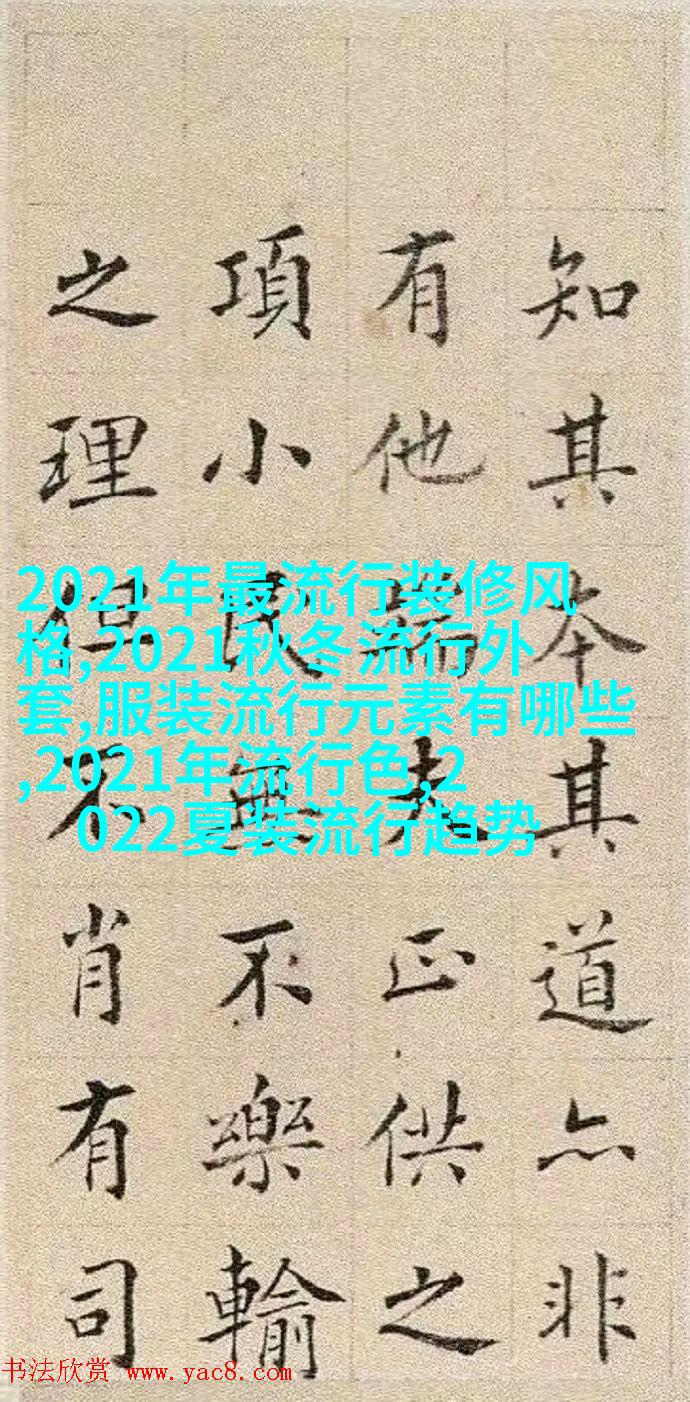 知其本其道亦非
有他端夫正供之
項小民無不樂輸
之理但不肖有司
2021年最流行装修风
格,2021秋冬流行外
套,服装流行元素有哪些
,2021年流行色,2
022夏装流行趋势
书法欣赏 www.yac8.com